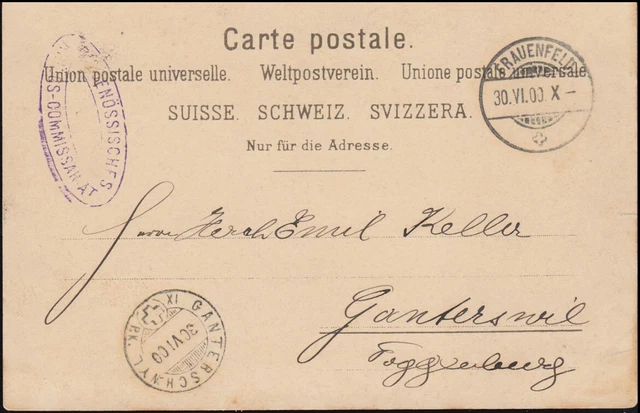 Carte postale.
Union postale universelle. Weltpostverein. Unione postale universale.
SUISSE. SCHWEIZ. SVIZZERA.
Nur für die Adresse.
FRAUENFELD
30.VI.00. X –
ENÖSSISCHES
S-COMMISSARIAT
Emil Keller
Ganterswil
Toggenburg
GANTERSCHWYL
30 VI 00
XI